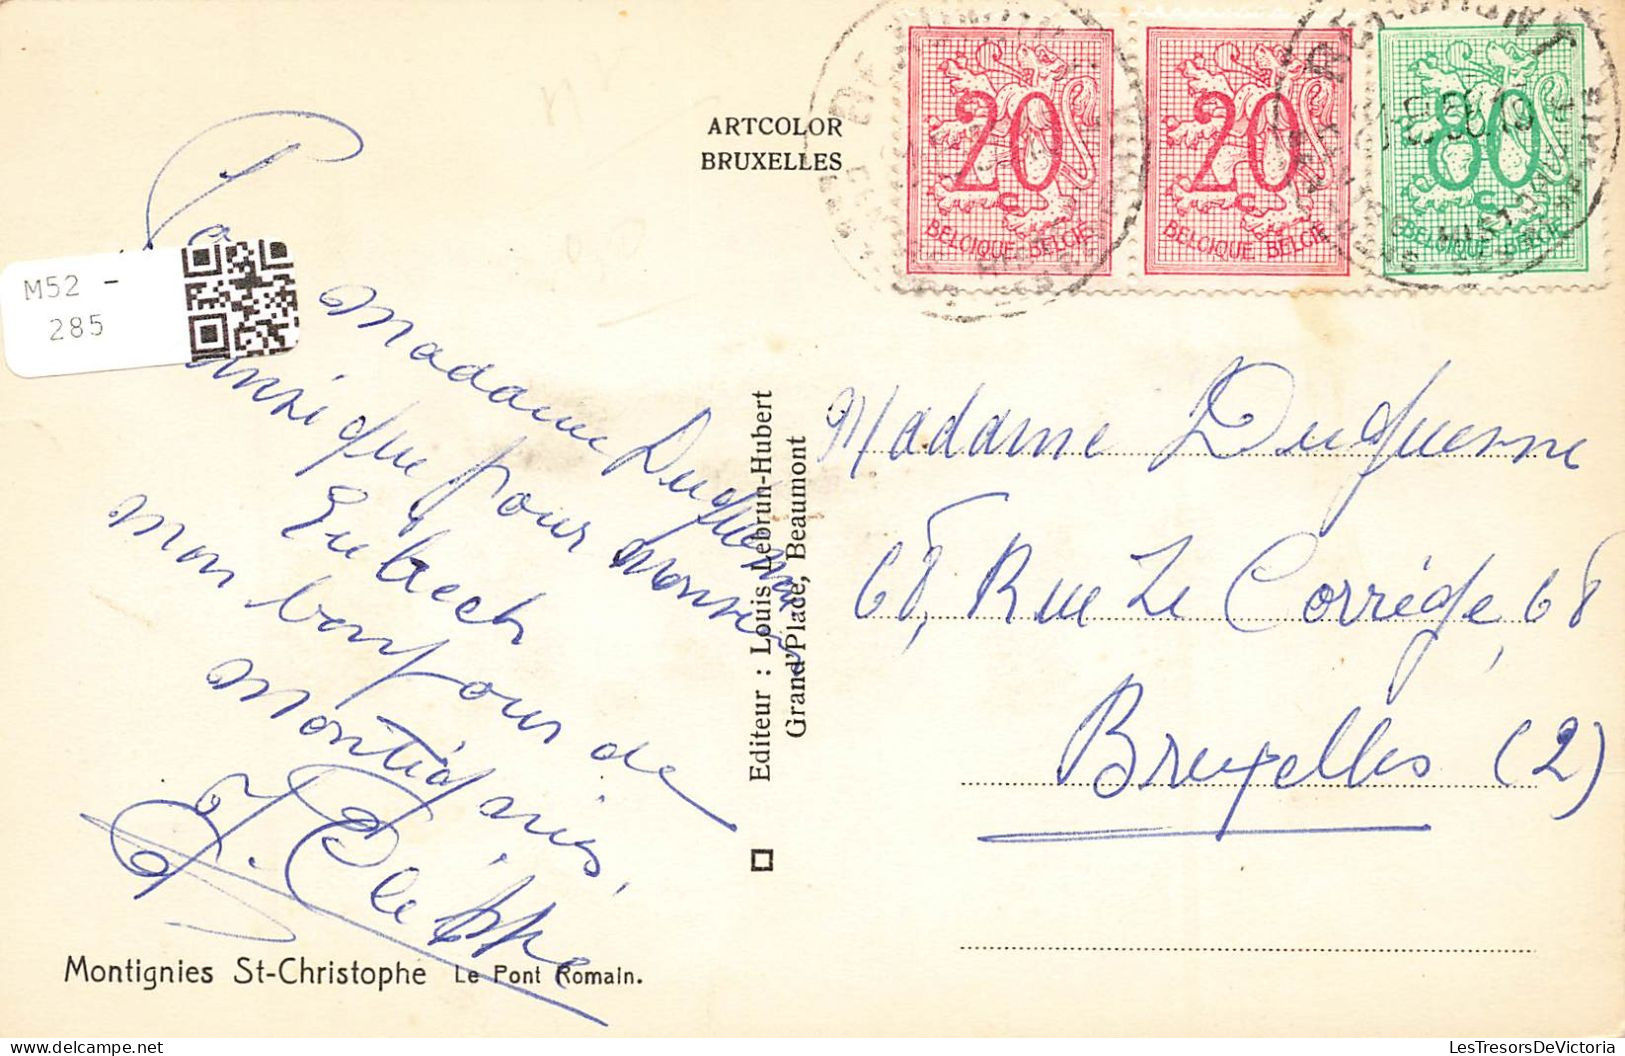 ARTCOLOR
BRUXELLES
20
s
BELGIQUE-BELGIE
20
s
BELGIQUE BELGIE
80
s
BELGIQUE BELGIE
M52 -
285
Pour
madame Duquenne
ainsi que pour monsieur
mon bonjour de
Montignies,
Editeur : Louis Lebrun-Hubert
Grand'Place, Beaumont
Madame Duquenne
68, Rue Le Corrège, 68
Bruxelles (2)
Montignies St-Christophe Le Pont Romain.
www.LesTresorsDeVictoria.com